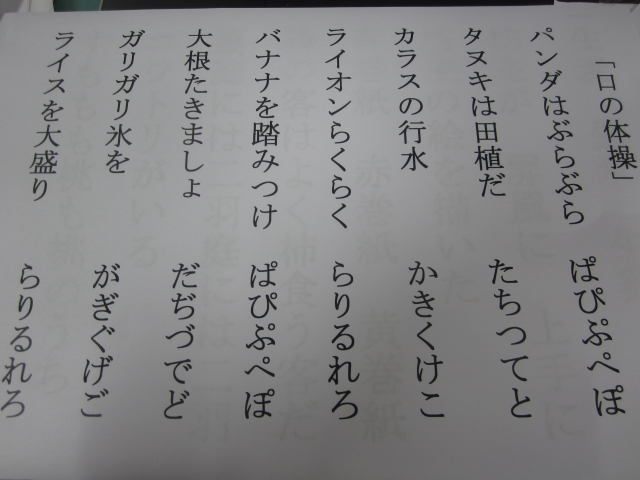 「口の体操」
パンダはぶらぶら　ぱぴぷぺぽ
タヌキは田植だ　たちつてと
カラスの行水　かきくけこ
ライオンらくらく　らりるれろ
バナナを踏みつけ　ぱぴぷぺぽ
大根たきましょ　だぢづでど
ガリガリ氷を　がぎぐげご
ライスを大盛り　らりるれろ